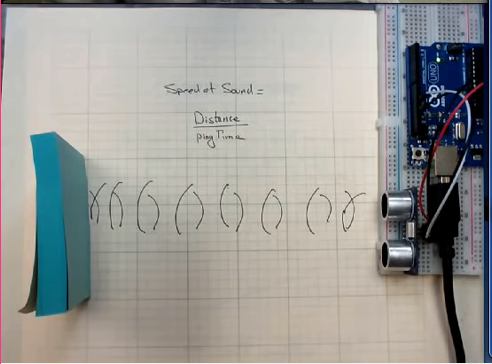 Speed of Sound =
Distance
ping Time
UNO